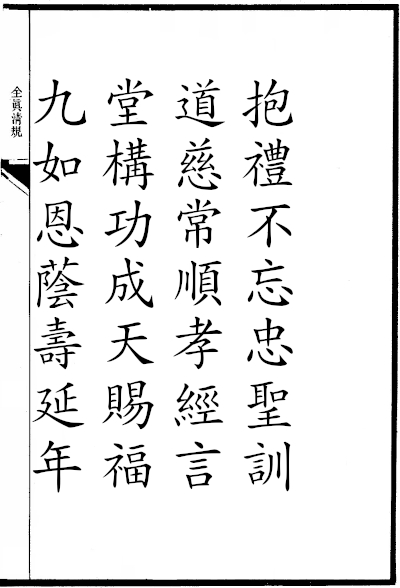 抱禮不忘忠聖訓
道慈常順孝經言
堂構功成天賜福
九如恩蔭壽延年
全真清規
一